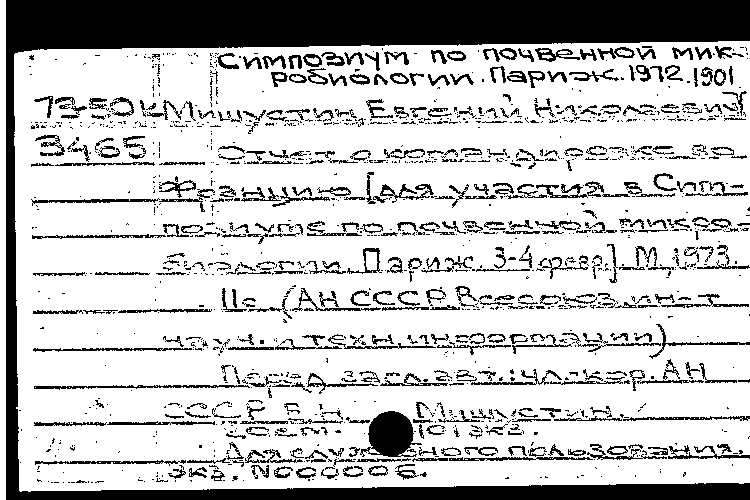 Симпозиум по почвенной мик-
робиологии. Париж. 1972. 1901
73-50к Мишустин, Евгений Николаевич
3465 Отчет о командировке во
Францию [для участия в Сим-
позиуме по почвенной микро-
биологии. Париж. 3-4 февр.]. М., 1973.
11с. (АН СССР. Всесоюз. ин-т
науч. и техн. информации).
Перед загл. авт.: чл.-кор. АН
СССР Е.Н. Мишустин.
20см. 101 экз.
Для служебного пользования.
Экз. N000006.